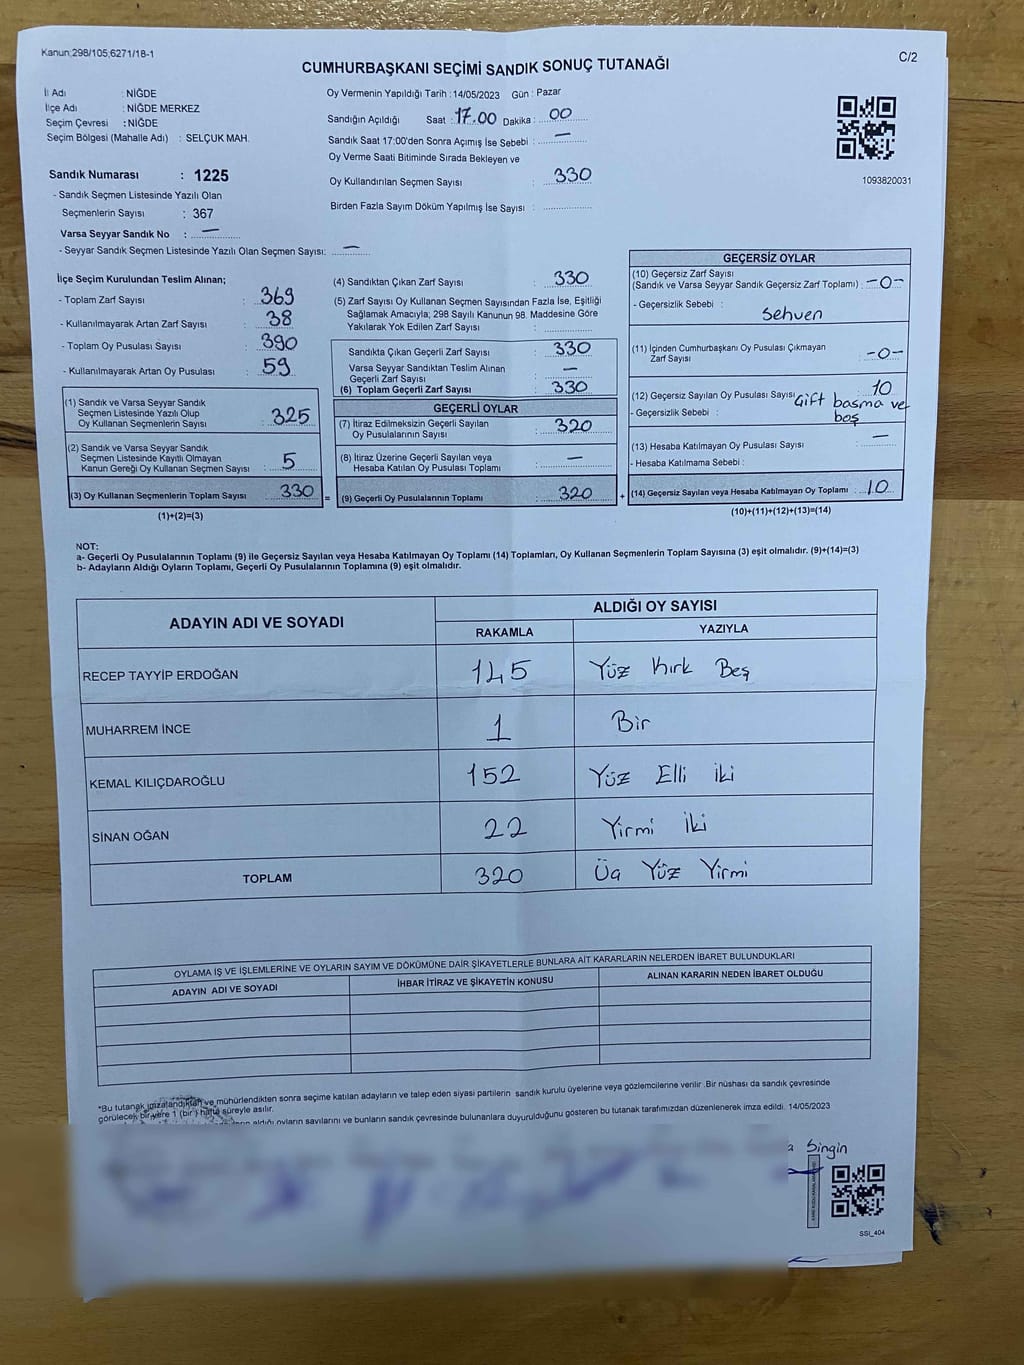 Kanun;298/105;6271/18-1
C/2
CUMHURBAŞKANI SEÇİMİ SANDIK SONUÇ TUTANAĞI
İl Adı : NİĞDE
İlçe Adı : NİĞDE MERKEZ
Seçim Çevresi : NİĞDE
Seçim Bölgesi (Mahalle Adı) : SELÇUK MAH.
Sandık Numarası : 1225
- Sandık Seçmen Listesinde Yazılı Olan
Seçmenlerin Sayısı : 367
Varsa Seyyar Sandık No : —
- Seyyar Sandık Seçmen Listesinde Yazılı Olan Seçmen Sayısı: —
Oy Vermenin Yapıldığı Tarih : 14/05/2023 Gün : Pazar
Sandığın Açıldığı Saat : 17.00 Dakika : 00
Sandık Saat 17:00'den Sonra Açımış İse Sebebi : —
Oy Verme Saati Bitiminde Sırada Bekleyen ve
Oy Kullandırılan Seçmen Sayısı : 330
Birden Fazla Sayım Döküm Yapılmış İse Sayısı :
1093820031
İlçe Seçim Kurulundan Teslim Alınan;
- Toplam Zarf Sayısı : 369
- Kullanılmayarak Artan Zarf Sayısı : 38
- Toplam Oy Pusulası Sayısı : 390
- Kullanılmayarak Artan Oy Pusulası : 59
(1) Sandık ve Varsa Seyyar Sandık
Seçmen Listesinde Yazılı Olup
Oy Kullanan Seçmenlerin Sayısı : 325
(2) Sandık ve Varsa Seyyar Sandık
Seçmen Listesinde Kayıtlı Olmayan
Kanun Gereği Oy Kullanan Seçmen Sayısı : 5
(3) Oy Kullanan Seçmenlerin Toplam Sayısı : 330
(1)+(2)=(3)
(4) Sandıktan Çıkan Zarf Sayısı : 330
(5) Zarf Sayısı Oy Kullanan Seçmen Sayısından Fazla İse, Eşitliği
Sağlamak Amacıyla; 298 Sayılı Kanunun 98. Maddesine Göre
Yakılarak Yok Edilen Zarf Sayısı :
Sandıkta Çıkan Geçerli Zarf Sayısı : 330
Varsa Seyyar Sandıktan Teslim Alınan
Geçerli Zarf Sayısı : —
(6) Toplam Geçerli Zarf Sayısı : 330
GEÇERLİ OYLAR
(7) İtiraz Edilmeksizin Geçerli Sayılan
Oy Pusulalarının Sayısı : 320
(8) İtiraz Üzerine Geçerli Sayılan veya
Hesaba Katılan Oy Pusulası Toplamı : —
= (9) Geçerli Oy Pusulalarının Toplamı : 320
GEÇERSİZ OYLAR
(10) Geçersiz Zarf Sayısı
(Sandık ve Varsa Seyyar Sandık Geçersiz Zarf Toplamı) : -0-
- Geçersizlik Sebebi : Sehven
(11) İçinden Cumhurbaşkanı Oy Pusulası Çıkmayan
Zarf Sayısı -0-
(12) Geçersiz Sayılan Oy Pusulası Sayısı 10
- Geçersizlik Sebebi : Çift basma ve
boş
(13) Hesaba Katılmayan Oy Pusulası Sayısı : —
- Hesaba Katılmama Sebebi :
+ (14) Geçersiz Sayılan veya Hesaba Katılmayan Oy Toplamı : 10
(10)+(11)+(12)+(13)=(14)
NOT:
a- Geçerli Oy Pusulalarının Toplamı (9) ile Geçersiz Sayılan veya Hesaba Katılmayan Oy Toplamı (14) Toplamları, Oy Kullanan Seçmenlerin Toplam Sayısına (3) eşit olmalıdır. (9)+(14)=(3)
b- Adayların Aldığı Oyların Toplamı, Geçerli Oy Pusulalarının Toplamına (9) eşit olmalıdır.
ADAYIN ADI VE SOYADI
ALDIĞI OY SAYISI
RAKAMLA YAZIYLA
RECEP TAYYİP ERDOĞAN 145 Yüz Kırk Beş
MUHARREM İNCE 1 Bir
KEMAL KILIÇDAROĞLU 152 Yüz Elli İki
SİNAN OĞAN 22 Yirmi İki
TOPLAM 320 Üç Yüz Yirmi
OYLAMA İŞ VE İŞLEMLERİNE VE OYLARIN SAYIM VE DÖKÜMÜNE DAİR ŞİKAYETLERLE BUNLARA AİT KARARLARIN NELERDEN İBARET BULUNDUKLARI
ADAYIN ADI VE SOYADI İHBAR İTİRAZ VE ŞİKAYETİN KONUSU ALINAN KARARIN NEDEN İBARET OLDUĞU
*Bu tutanak imzalandıktan ve mühürlendikten sonra seçime katılan adayların ve talep eden siyasi partilerin sandık kurulu üyelerine veya gözlemcilerine verilir. Bir nüshası da sandık çevresinde
görülecek bir yere 1 (bir) hafta süreyle asılır.
aldığı oyların sayılarını ve bunların sandık çevresinde bulunanlara duyurulduğunu gösteren bu tutanak tarafımızdan düzenlenerek imza edildi. 14/05/2023
Singin
SSI_404